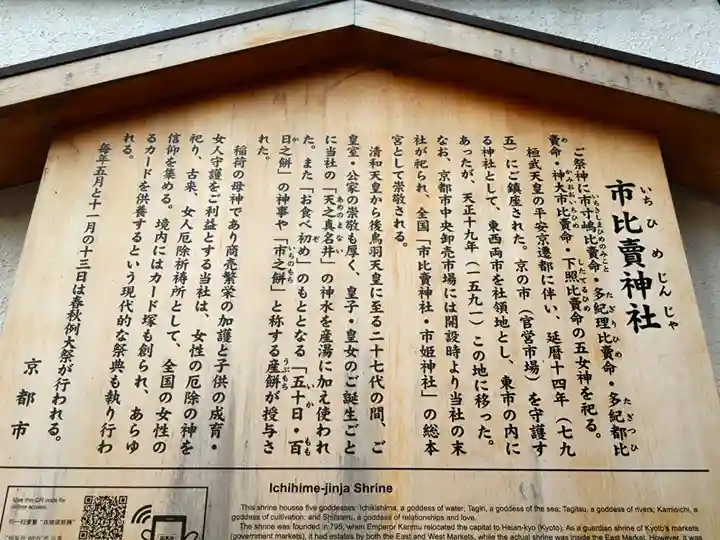 市比賣神社
いちひめじんじゃ
ご祭神に市寸嶋比賣命・多紀理比賣命・多紀都比
いちきしまひめのみこと たぎりひめ たぎつひ
賣命・神大市比賣命・下照比賣命の五女神を祀る。
め かみおおいちひめ したてるひめ
桓武天皇の平安京遷都に伴い、延暦十四年（七九
五）にご鎮座された。京の市（官営市場）を守護す
る神社として、東西両市を社領地とし、東市の内に
あったが、天正十九年（一五九一）この地に移った。
なお、京都市中央卸売市場には開設時より当社の末
社が祀られ、全国「市比賣神社・市姫神社」の総本
宮として崇敬される。
清和天皇から後鳥羽天皇に至る二十七代の間、ご
皇室・公家の崇敬も厚く、皇子・皇女のご誕生ごと
に当社の「天之真名井」の神水を産湯に加え使われ
あめのまない
た。また「お食べ初め」のもととなる「五十日・百
ぞ いか もも
日之餅」の神事や「市之餅」と称する産餅が授与さ
か いちのもち うぶもち
れた。
稲荷の母神であり商売繁栄の加護と子供の成育・
女人守護をご利益とする当社は、女性の厄除の神を
祀り、古来、女人厄除祈祷所として、全国の女性の
信仰を集める。境内にはカード塚も創られ、あらゆ
るカードを供養するという現代的な祭典も執り行わ
れる。
毎年五月と十一月の十三日は春秋例大祭が行われる。
京都市
Ichihime-jinja Shrine
This shrine houses five goddesses: Ichikishima, a goddess of water, Tagiri, a goddess of the sea; Tagitsu, a goddess of rivers; Kamioichi, a
goddess of cultivation; and Shitateru, a goddess of relationships and love.
The shrine was founded in 795, when Emperor Kanmu relocated the capital to Heian-kyo (Kyoto). As a guardian shrine of Kyoto's markets
(government markets), it had estates by both the East and West Markets, while the actual shrine was inside the East Market. However, it was
Use this QR code for
online access.